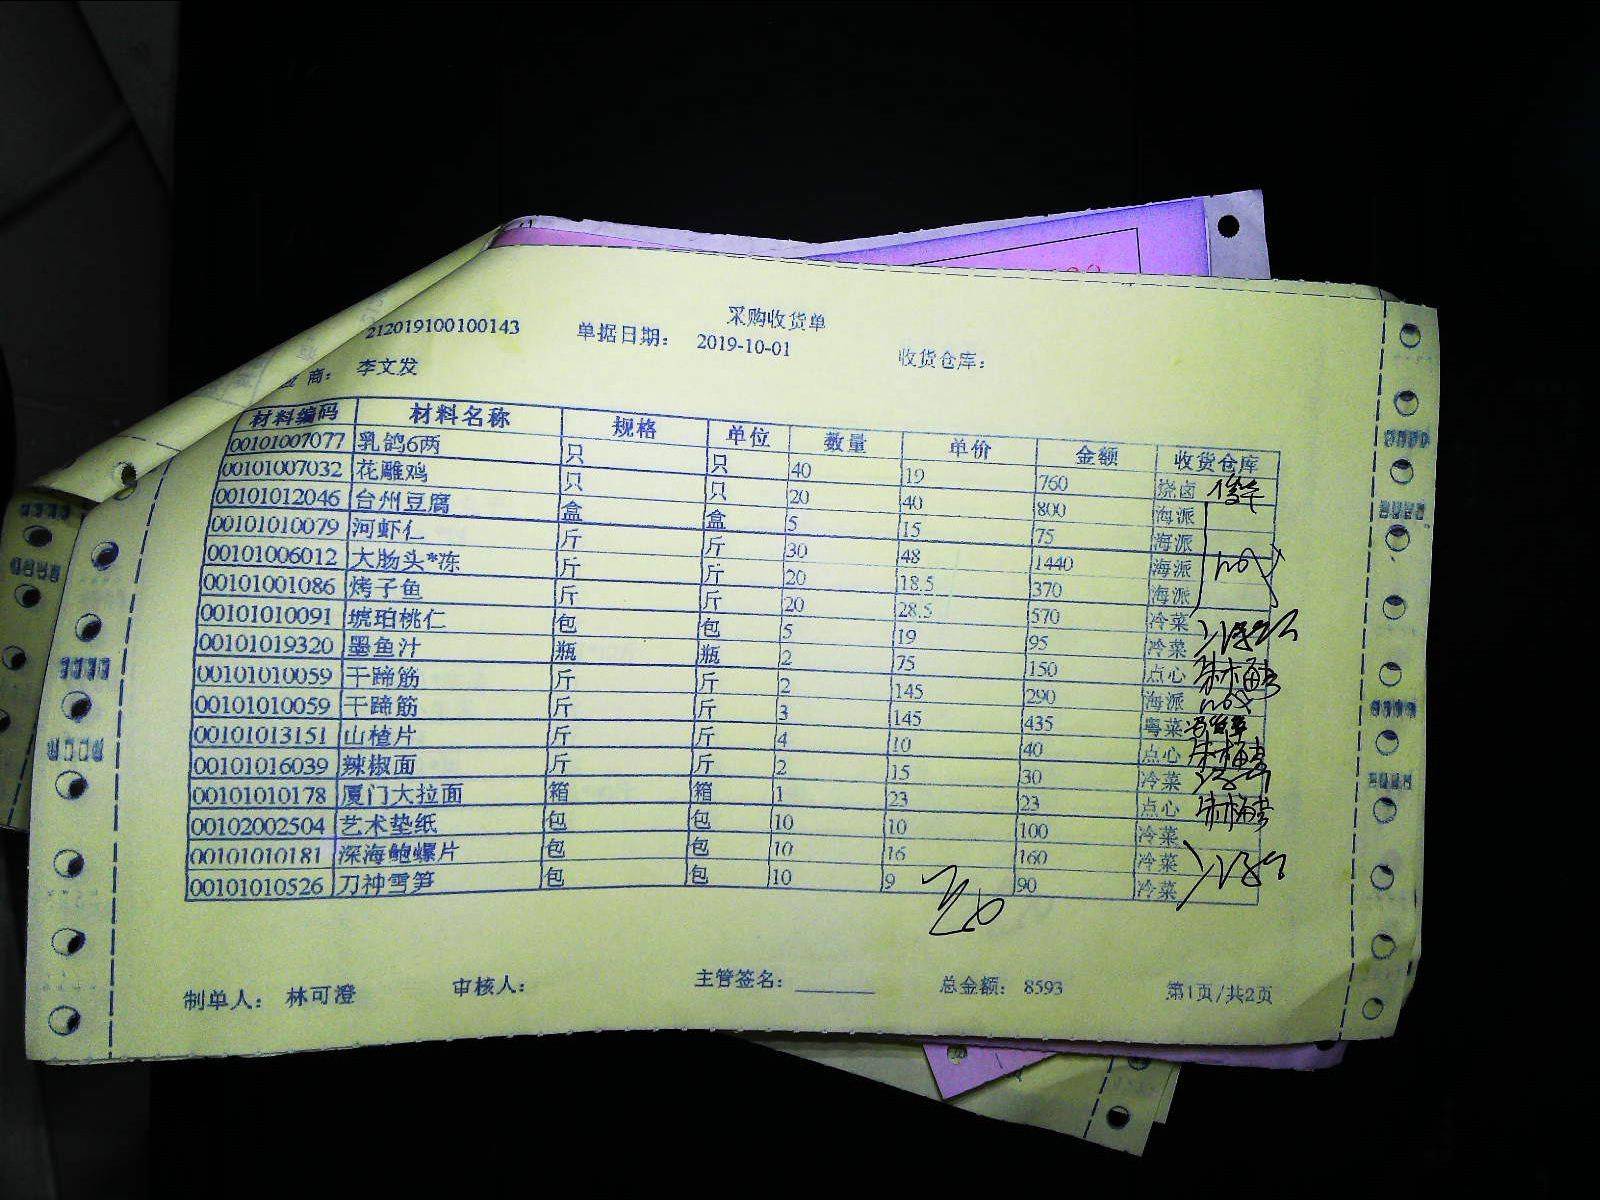 采购收货单
212019100100143 单据日期: 2019-10-01 收货仓库:
商: 李文发
材料编码 材料名称 规格 单位 数量 单价 金额 收货仓库
00101007077 乳鸽6两 只 只 40 19 760 烧卤
00101007032 花雕鸡 只 只 20 40 800 海派
00101012046 台州豆腐 盒 盒 5 15 75 海派
00101010079 河虾仁 斤 斤 30 48 1440 海派
00101006012 大肠头*冻 斤 斤 20 18.5 370 海派
00101001086 烤子鱼 斤 斤 20 28.5 570 冷菜
00101010091 琥珀桃仁 包 包 5 19 95 冷菜
00101019320 墨鱼汁 瓶 瓶 2 75 150 点心
00101010059 干蹄筋 斤 斤 2 145 290 海派
00101010059 干蹄筋 斤 斤 3 145 435 粤菜
00101013151 山楂片 斤 斤 4 10 40 点心
00101016039 辣椒面 斤 斤 2 15 30 冷菜
00101010178 厦门大拉面 箱 箱 1 23 23 点心
00102002504 艺术垫纸 包 包 10 10 100 冷菜
00101010181 深海鲍螺片 包 包 10 16 160 冷菜
00101010526 刀神雪笋 包 包 10 9 90 冷菜
制单人: 林可澄 审核人: 主管签名: 总金额: 8593 第1页/共2页